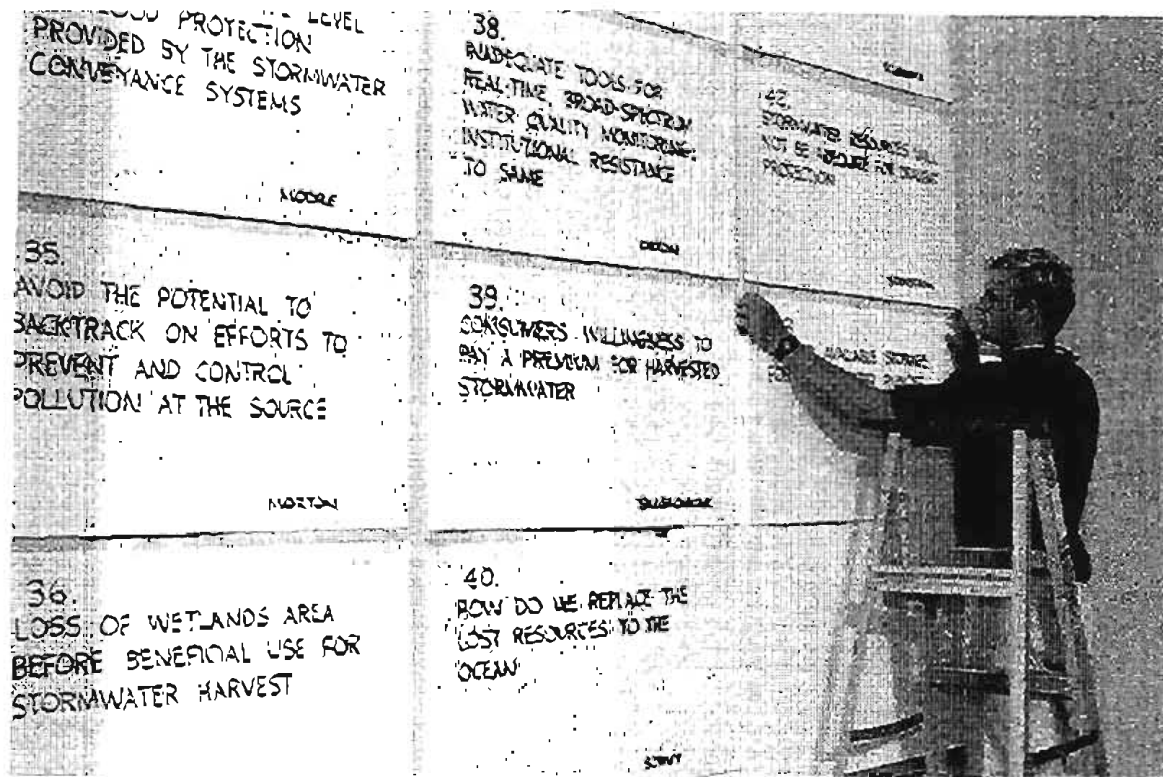 PROTECTION LEVEL
PROVIDED BY THE STORMWATER
CONVEYANCE SYSTEMS
MOORE
35.
AVOID THE POTENTIAL TO
BACKTRACK ON EFFORTS TO
PREVENT AND CONTROL
POLLUTION AT THE SOURCE
MORTON
36.
LOSS OF WETLANDS AREA
BEFORE BENEFICIAL USE FOR
STORMWATER HARVEST
38.
INADEQUATE TOOLS FOR
REAL-TIME, BROAD-SPECTRUM
WATER QUALITY MONITORING;
INSTITUTIONAL RESISTANCE
TO SAME
39.
CONSUMERS WILLINGNESS TO
PAY A PREMIUM FOR HARVESTED
STORMWATER
40.
HOW DO WE REPLACE THE
LOST RESOURCES TO THE
OCEAN
42.
STORMWATER RESOURCES WILL
NOT BE SECURE FOR DROUGHT
PROTECTION
STORAGE
FOR